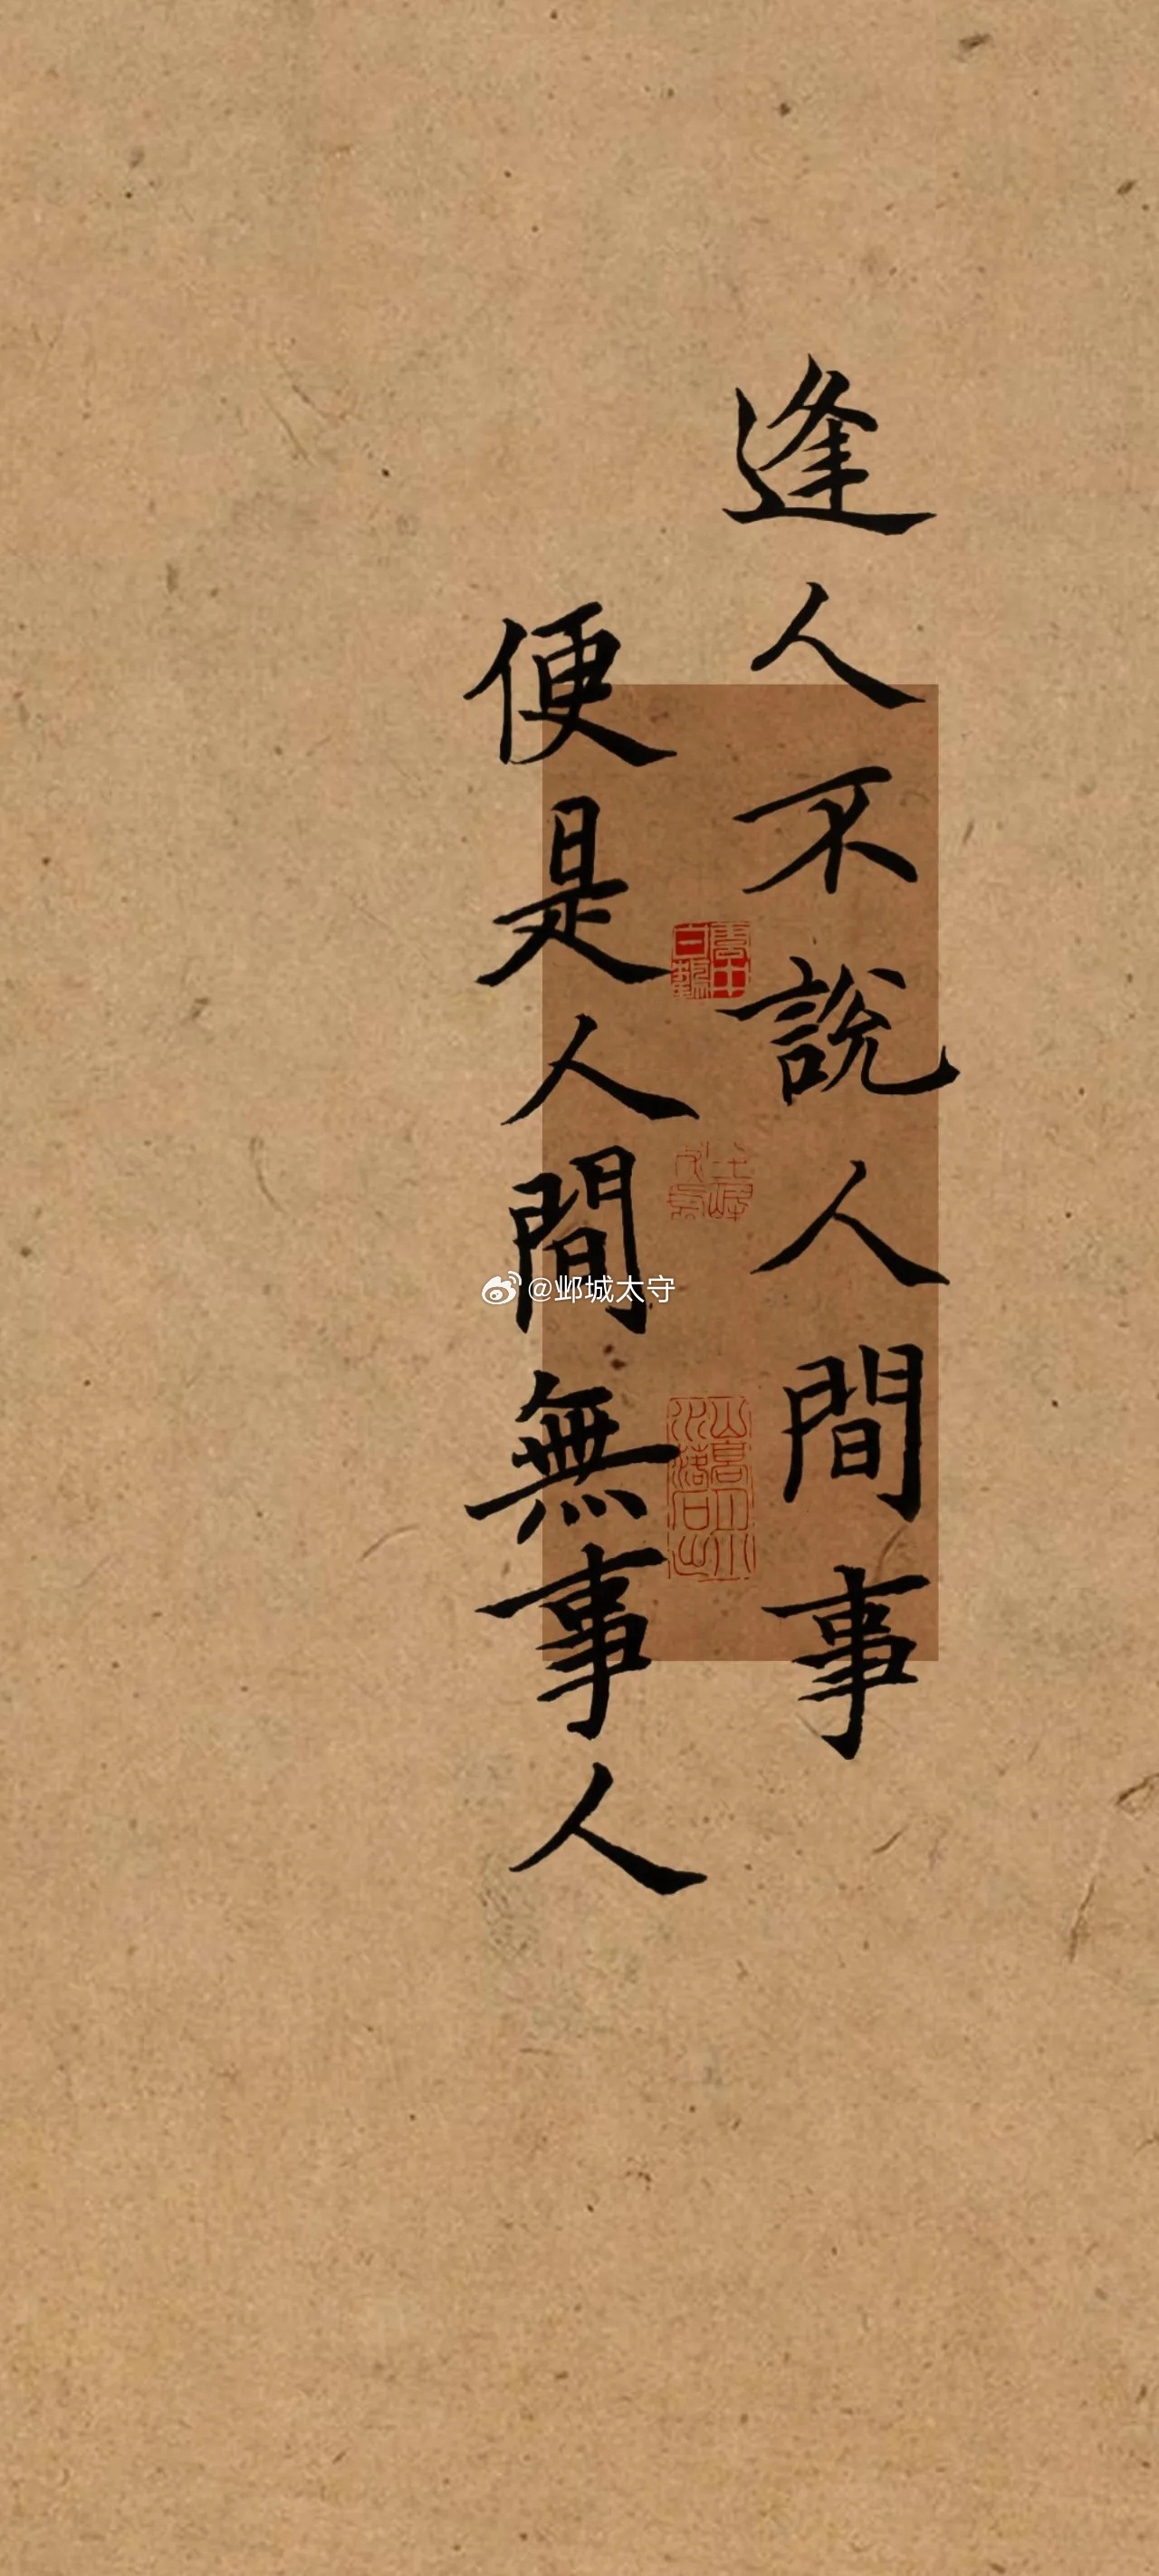 逢人不說人間事
便是人間無事人
@邺城太守